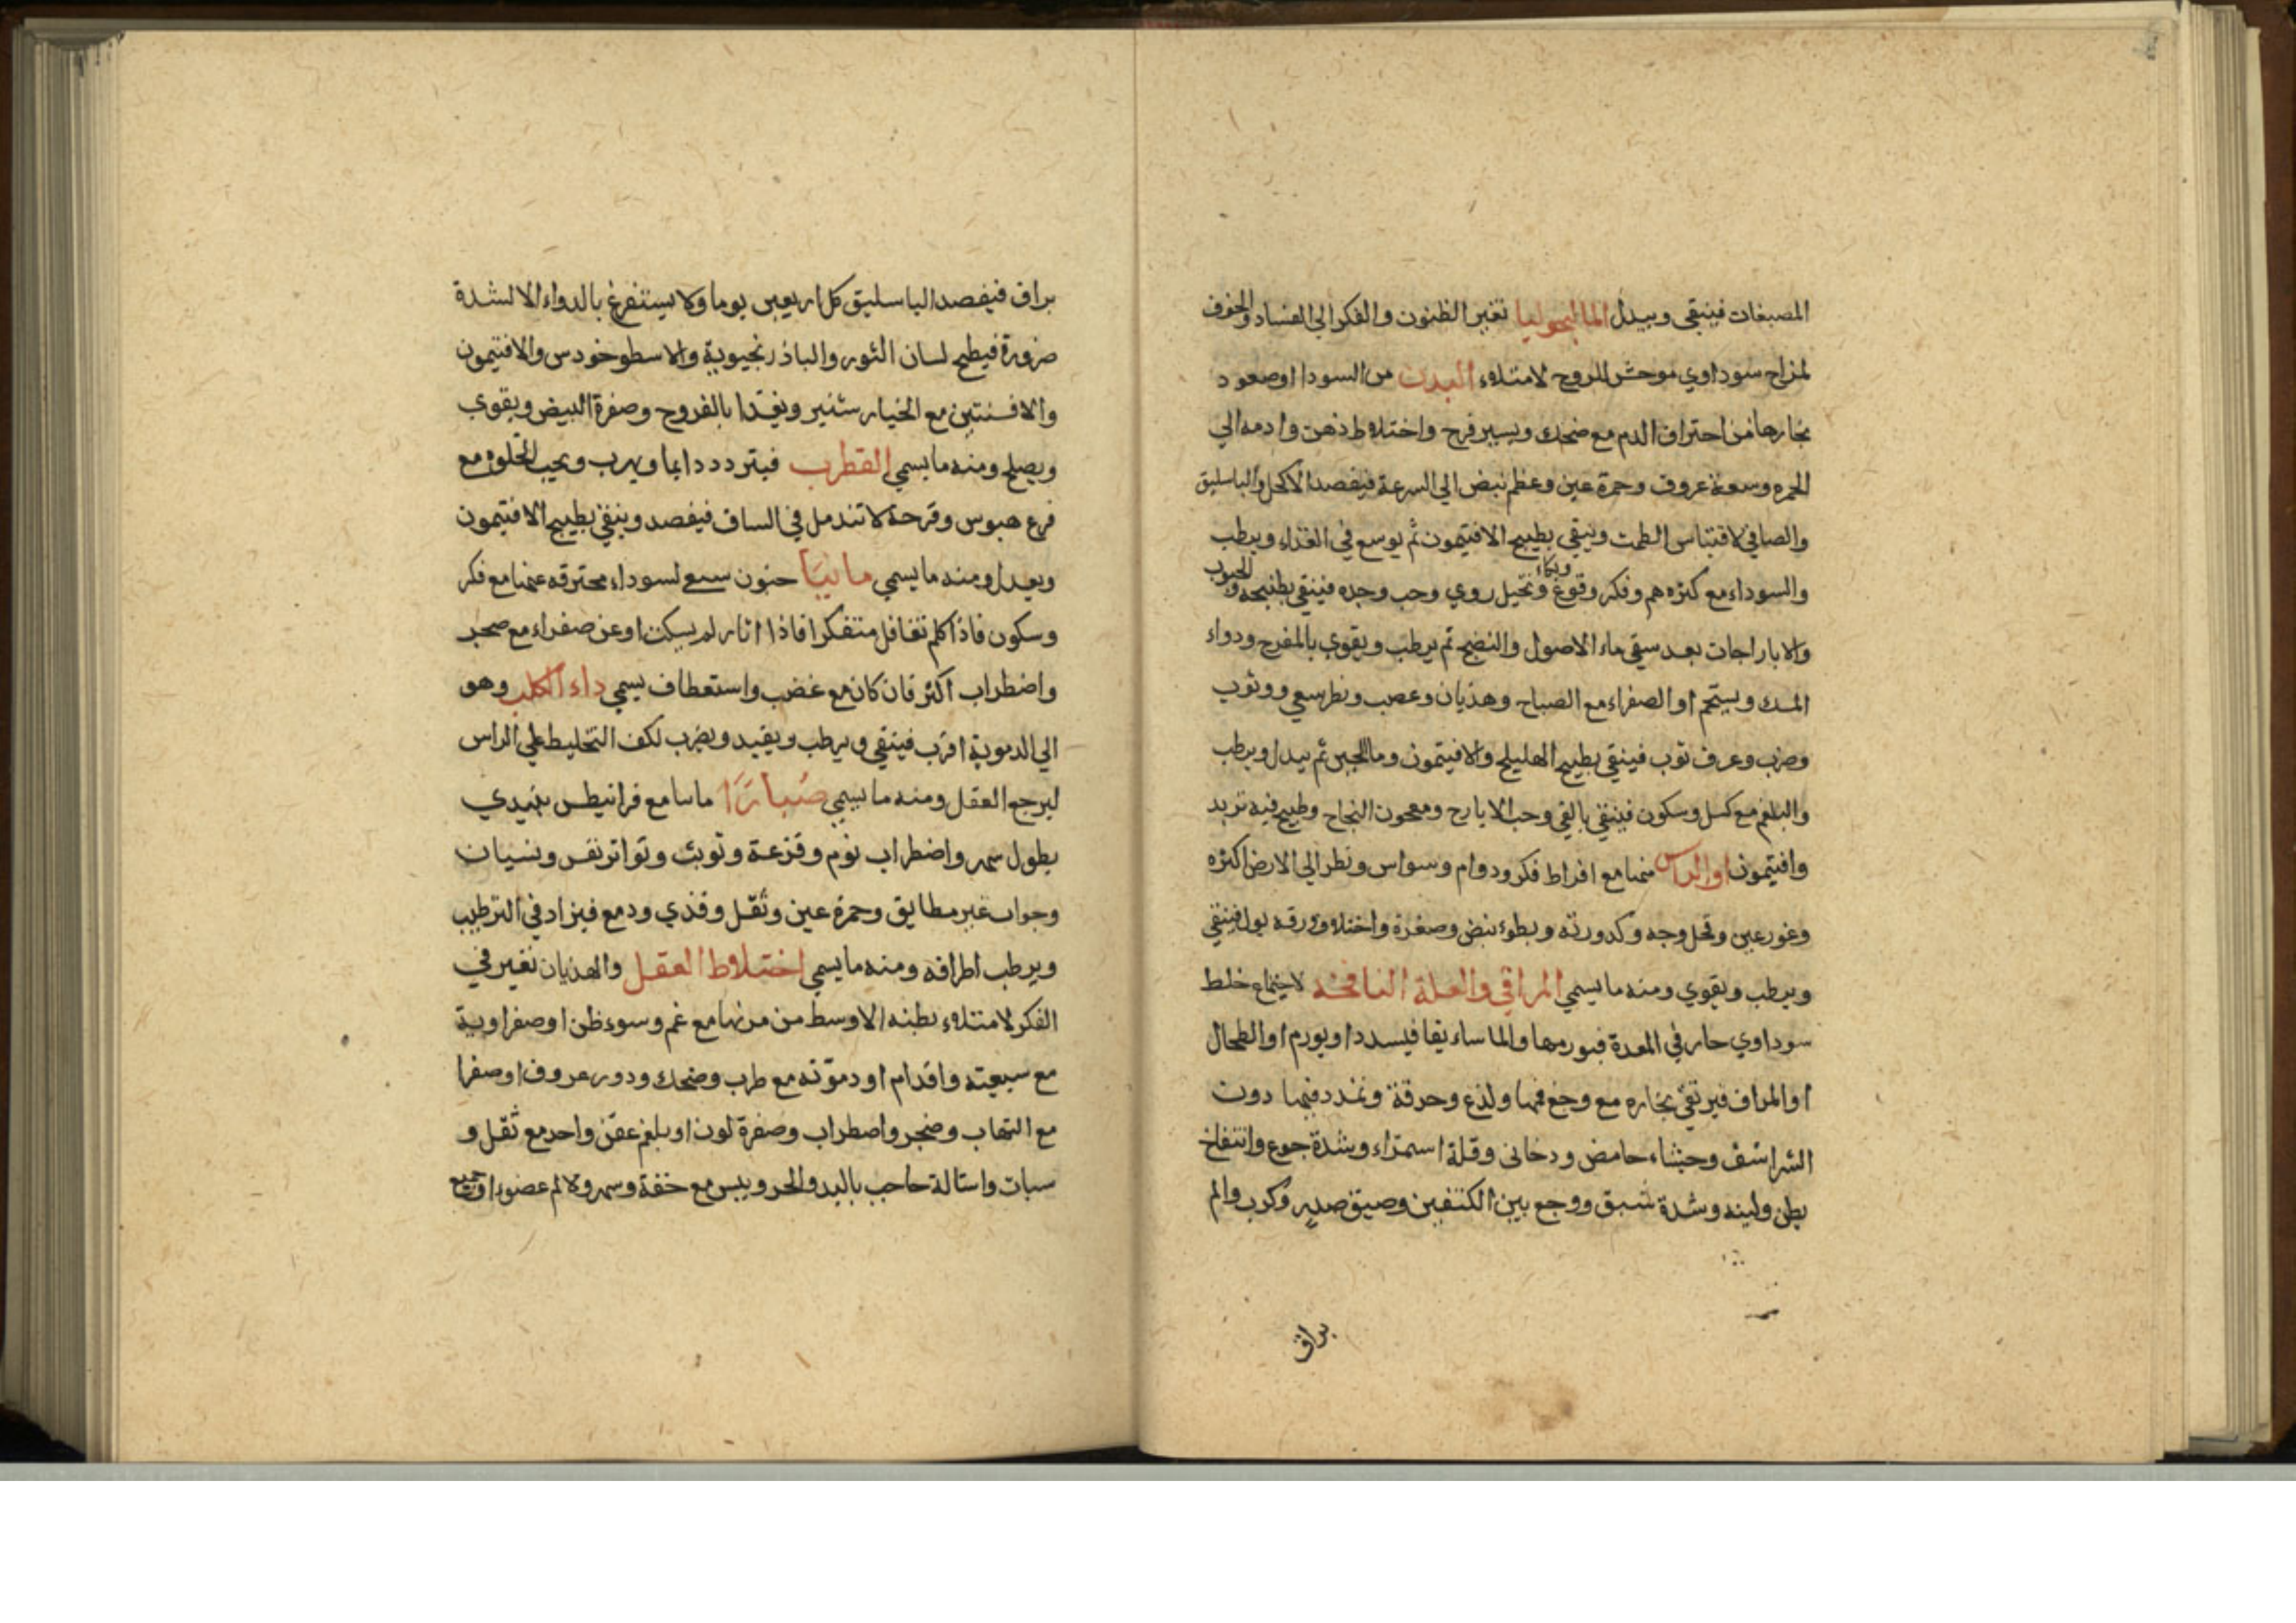 المصبغات فينقي ويبدل الماليخوليا تغير الظنون والفكر الي الفساد والخوف
لمزاج سوداوي موحش للروح لامتلاء البدن من السودا اوصعود
بخارها من احتراق الدم مع ضحك ويسير فرح واختلاط ذهن وادمه الي
الحمره وسعة عروق وحمرة عين وعظم نبض الي السرعة فيفصد الاكحل والباسليق
والصافن لاحتباس الطمث وينقي بطبيخ الافتيمون ثم يوسع في الغذاء ويرطب
والسوداء مع كثرة هم وفكر وفزع وبكاء وتخيل روي وحب وحده فينقي بطبيخه والحبوب
والايارجات بعد سقي ماء الاصول والنضج ثم يرطب ويقوي بالمفرح ودواء
المسك ويستحم او الصفراء مع الصياح وهذيان وغضب ونظر سبعي ووثوب
وضرب فينقي بطبيخ الهليلج والافتيمون وما الجبن ثم يبدل ويرطب
والبلغم مع كسل وسكون فينقي بالقي وحب الايارج ومعجون النجاح وطبيخ فيه تربد
وافتيمون او الراس منها مع افراط فكر ودوام وسواس ونظر الي الارض اكثره
وغور عين وقحل وجه وكدورته وبطوء نبض وصغره واختلاف ورقه بول فينقي
ويرطب ويقوي ومنه مايسمي المراقي والعلة النافخة لاجتماع خلط
سوداوي حار في المعدة فيورمها والماساريقا فيسددا ويورم او الطحال
او المراق فيرتقي بخاره مع وجع فيها ولذع وحرقة وتمدد فيها دون
الشراسف وجشاء حامض ودخاني وقلة استمراء وشدة جوع وانتفاخ
بطن ولينه وشدة شبق ووجع بين الكتفين وضيق صدر وكرب والم
براق
براق فيفصد الباسليق كل اربعين يوما ولا يستفرغ بالدواء الا لشدة
ضرورة فيطبخ لسان الثور والباذرنجبوية والاسطوخودس والافتيمون
والافسنتين مع الخيارشنبر ويغذا بالفروج وصفرة البيض ويقوي
ويصلح ومنه مايسمي القطرب فيتردد دايما ويهرب ويحب الخلوه مع
فزع عبوس وقرحة لاتندمل في الساق فيفصد وينقي بطبيخ الافتيمون
ويعدل ومنه مايسمي مانيا جنون سبعي لسوداء محترقه عنها مع فكر
وسكون فاذا كلم تغافل متفكرا فاذا اثار لم يسكت اوعن صفراء مع ضجر
واضطراب اكثر فان كان مع غضب واستعطاف يسمي داء الكلب وهو
الي الدموية اقرب فينقي ويرطب ويقيد ويضرب لكف التخليط علي الراس
ليرجع العقل ومنه مايسمي صبارا مانيا مع فرانيطس يبتدي
بطول سهر واضطراب نوم وفزعة وتوثب وتواتر نفس ونسيان
وجواب غير مطابق وحمرة عين وثقل وقذي ودمع فيزاد في الترطيب
ويرطب اطرافه ومنه مايسمي اختلاط العقل والهذيان تغير في
الفكر لامتلاء بطنه الاوسط من مرتها مع غم وسوء ظن اوصفراوية
مع سبعيته واقدام او دموته مع طرب وضحك ودور عروق اوصفرا
مع التهاب وضجر واضطراب وصفرة لون اوبلغم عفن واحد مع ثقل و
سبات واشالة حاجب باليد والحر ويبس مع خفة وسهر ولا لم عضو اوجميع